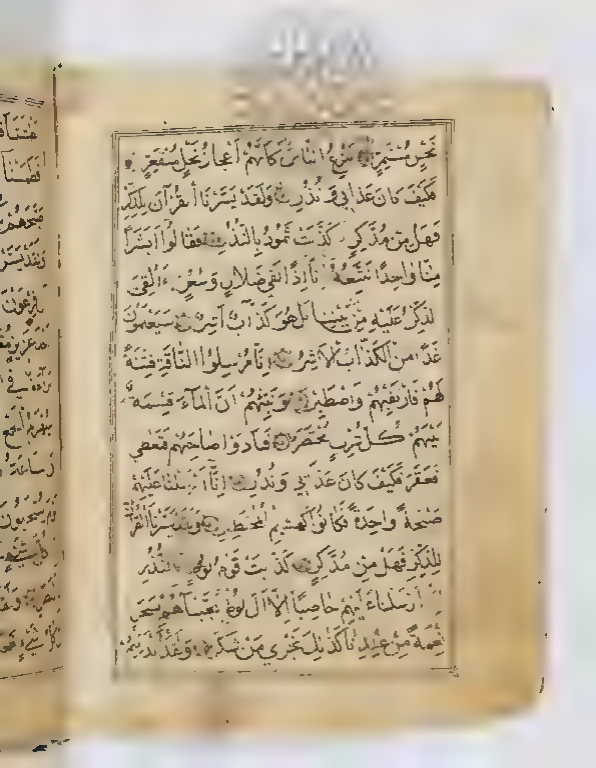 نَحْسٍ مُسْتَمِرٍّ تَنْزِعُ النَّاسَ كَأَنَّهُمْ أَعْجَازُ نَخْلٍ مُنْقَعِرٍ
فَكَيْفَ كَانَ عَذَابِي وَنُذُرِ وَلَقَدْ يَسَّرْنَا الْقُرْآنَ لِلذِّكْرِ
فَهَلْ مِنْ مُدَّكِرٍ كَذَّبَتْ ثَمُودُ بِالنُّذُرِ فَقَالُوا أَبَشَرًا
مِنَّا وَاحِدًا نَتَّبِعُهُ إِنَّا إِذًا لَفِي ضَلَالٍ وَسُعُرٍ ءَأُلْقِيَ
الذِّكْرُ عَلَيْهِ مِنْ بَيْنِنَا بَلْ هُوَ كَذَّابٌ أَشِرٌ سَيَعْلَمُونَ
غَدًا مَنِ الْكَذَّابُ الْأَشِرُ إِنَّا مُرْسِلُوا النَّاقَةِ فِتْنَةً
لَهُمْ فَارْتَقِبْهُمْ وَاصْطَبِرْ وَنَبِّئْهُمْ أَنَّ الْمَاءَ قِسْمَةٌ
بَيْنَهُمْ كُلُّ شِرْبٍ مُحْتَضَرٌ فَنَادَوْا صَاحِبَهُمْ فَتَعَاطَى
فَعَقَرَ فَكَيْفَ كَانَ عَذَابِي وَنُذُرِ إِنَّا أَرْسَلْنَا عَلَيْهِمْ
صَيْحَةً وَاحِدَةً فَكَانُوا كَهَشِيمِ الْمُحْتَظِرِ وَلَقَدْ يَسَّرْنَا الْقُرْآنَ
لِلذِّكْرِ فَهَلْ مِنْ مُدَّكِرٍ كَذَّبَتْ قَوْمُ لُوطٍ بِالنُّذُرِ
إِنَّا أَرْسَلْنَا عَلَيْهِمْ حَاصِبًا إِلَّا آلَ لُوطٍ نَجَّيْنَاهُمْ بِسَحَرٍ
نِعْمَةً مِنْ عِنْدِنَا كَذَلِكَ نَجْزِي مَنْ شَكَرَ وَلَقَدْ أَنْذَرَهُمْ